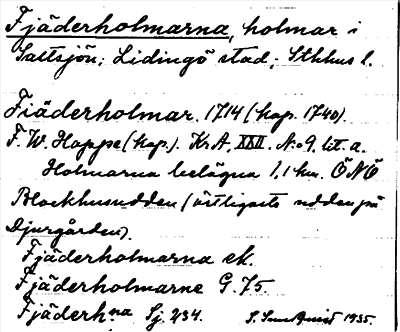 Fjäderholmarna, holmar i
Saltsjön; Lidingö stad; Sthlms l.
Fiäderholmar. 1714 (kop. 1740).
F. W. Hoppe (kop.). Kr. A, XXII. No 9, lit. a.
Holmarna belägna 1,1 km. ÖNÖ
Blockhusudden (östligaste udden på
Djurgården).
Fjäderholmarna ek.
Fjäderholmarne G. 75.
Fjäderhna Sj. 234. 1935.